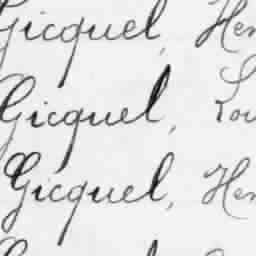 Gicquel, Hen
Gicquel, Lou
Gicquel, Hen